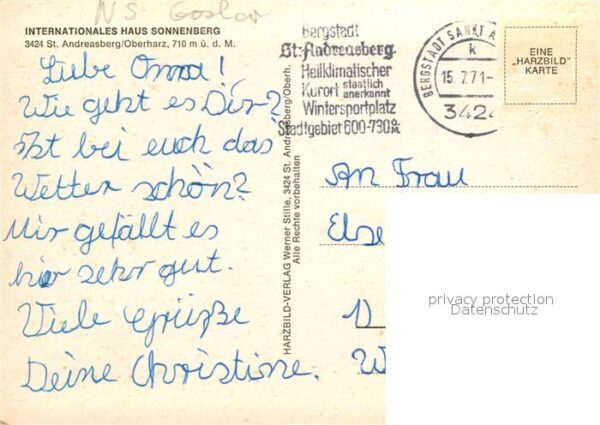 NS Goslar
INTERNATIONALES HAUS SONNENBERG
3424 St. Andreasberg/Oberharz, 710 m ü. d. M.
Liebe Oma!
Wie geht es Dir?
Ist bei euch das
Wetter schön?
Mir gefällt es
hier sehr gut.
Viele Grüße
Deine Christine.
HARZBILD-VERLAG Werner Stille, 3424 St. Andreasberg/Oberh.
Alle Rechte vorbehalten
Bergstadt
St. Andreasberg
Heilklimatischer
Kurort staatlich anerkannt
Wintersportplatz
Stadtgebiet 600-730 m
BERGSTADT SANKT A
k
15.7.71-
3424
EINE
„HARZBILD"
KARTE
An Frau
Else
privacy protection
Datenschutz